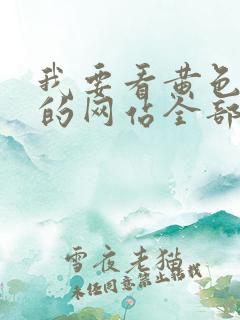 我要看黄色
的网站全部
雪夜老猫
未经同意禁止转载